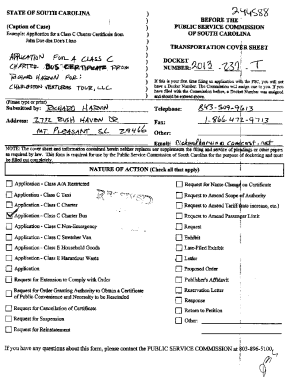 244588
STATE OF SOUTH CAROLINA
(Caption of Case)
Example: Application for a Class C Charter Certificate from
John Doe dba Doe's Limo
APPLICATION FOR A CLASS C
CHARTER BUS CERTIFICATE FROM
RICHARD HARDIN FOR:
CHARLESTON VENTURES TOUR, LLC
BEFORE THE
PUBLIC SERVICE COMMISSION
OF SOUTH CAROLINA
TRANSPORTATION COVER SHEET
DOCKET
NUMBER: 2013 - 239 - T
If this is your first time filing an application with the PSC, you will not
have a Docket Number. The Commission will assign one to you. If you
have filed with the Commission before, a Docket Number was assigned
and should be entered above.
(Please type or print)
Submitted by: RICHARD HARDIN
Address: 2772 RUSH HAVEN DR
MT. PLEASANT SC 29466
Telephone: 843-509-9613
Fax: 1.866-472-9713
Other:
Email:
NOTE: The cover sheet and information contained herein neither replaces nor supplements the filing and service of pleadings or other papers
as required by law. This form is required for use by the Public Service Commission of South Carolina for the purpose of docketing and must
be filled out completely.
NATURE OF ACTION (Check all that apply)
Application - Class A/A Restricted
Application - Class C Taxi
Application - Class C Charter
Application - Class C Charter Bus
Application - Class C Non-Emergency
Application - Class C Stretcher Van
Application - Class E Household Goods
Application - Class E Hazardous Waste
Application
Request for Extension to Comply with Order
Request for Order Granting Authority to Obtain a Certificate
of Public Convenience and Necessity to be Rescinded
Request for Cancellation of Certificate
Request for Suspension
Request for Reinstatement
Request for Name Change on Certificate
Request to Amend Scope of Authority
Request to Amend Tariff (rate increase, etc.)
Request to Amend Passenger Limit
Request
Exhibit
Late-Filed Exhibit
Letter
Proposed Order
Publisher's Affidavit
Reservation Letter
Response
Return to Petition
Other:
If you have any questions about this form, contact the PUBLIC SERVICE COMMISSION at 803-896-5100.